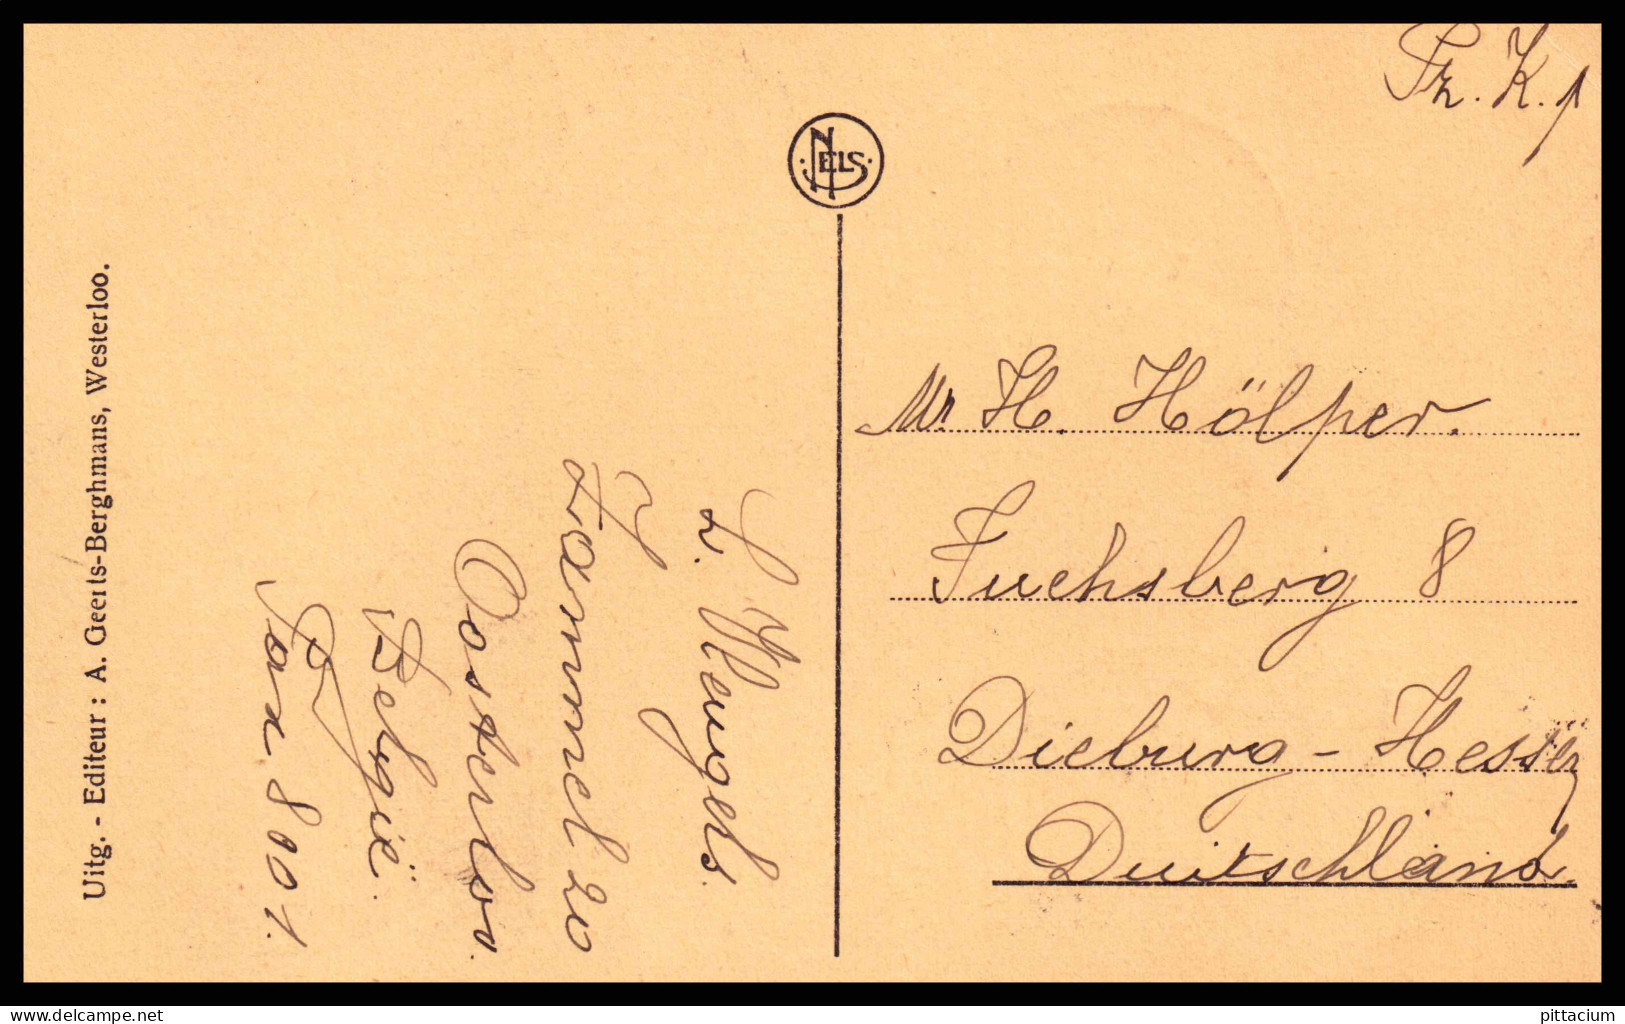 Uitg. - Editeur : A. Geerts-Berghmans, Westerloo.
L. Wengels.
Trammel 20
Oosterloo.
Belgïe.
8001.
NELS
Fz. K. 1
Mr. H. Hölper.
Fuchsberg 8
Dieburg - Hessen
Duitschland.
www.delcampe.net
pittacium